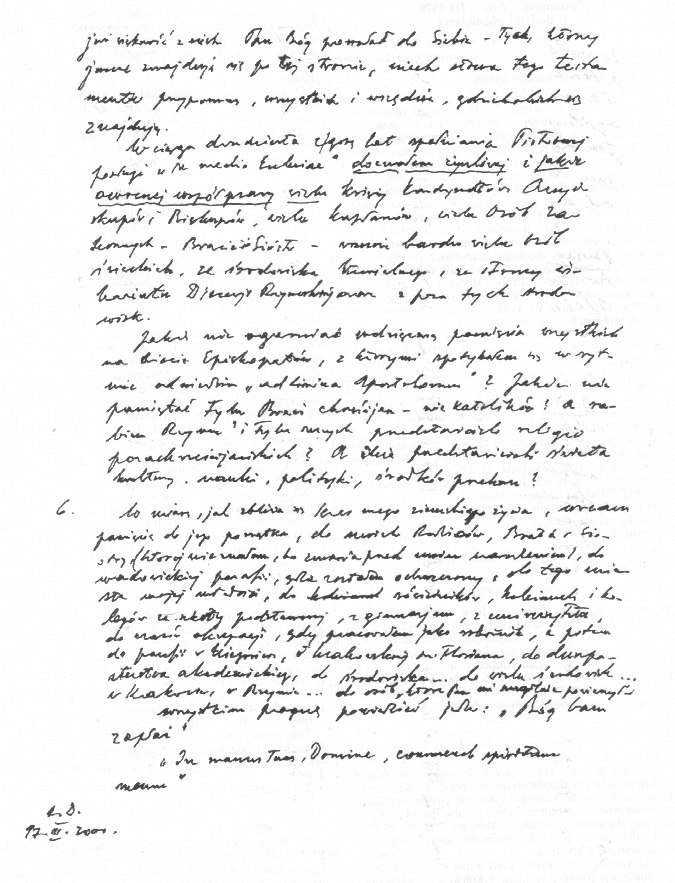 już większość z nich Pan Bóg powołał do Siebie – Tych, którzy
jeszcze znajdują się po tej stronie, niech słowa tego testa
mentu przypomną, wszystkich i wszędzie, gdziekolwiek się
znajdują.
W ciągu dwudziestu z górą lat spełniania Piotrowej
posługi „in medio Ecclesiae” doznałem życzliwej i jakże
owocnej współpracy wielu Księży Kardynałów, Arcyb
skupów i Biskupów, wielu kapłanów, wielu osób za
konnych – Braci i Sióstr – wreszcie bardzo wielu osób
świeckich, ze środowiska kurialnego, ze strony wi-
kariatu Diecezji Rzymskiej oraz spoza tych środo
wisk.
Jakże nie ogarniać wdzięczną pamięcią wszystkich
na świecie Episkopatów, z którymi spotykałem się w ryt-
mie odwiedzin „ad limina Apostolorum”? Jakże nie
pamiętać tylu Braci chrześcijan – nie katolików? A ra-
bina Rzymu? i tylu innych przedstawicieli religii
pozachrześcijańskich? A iluż przedstawicieli świata
kultury, nauki, polityki, środków przekazu?
6. W miarę, jak zbliża się kres mego ziemskiego życia, wracam
pamięcią do jego początku, do moich Rodziców, Brata i Sio-
stry (której nie znałem, bo zmarła przed moim narodzeniem), do
wadowickiej parafii, gdzie zostałem ochrzczony, do tego mia
sta mojej młodości, do rówieśników, koleżanek i ko-
legów ze szkoły podstawowej, z gimnazjum, z uniwersytetu,
do czasów okupacji, gdy pracowałem jako robotnik, a potem
do parafii w Niegowici, i krakowskiej św. Floriana, do duszpa-
sterstwa akademickiego, do środowiska... do wielu środowisk...
w Krakowie, w Rzymie... do osób, które Pan mi szczególnie powierzył
wszystkim pragnę powiedzieć jedno: „Bóg Wam
zapłać”
„In manus Tuas, Domine, commendo spiritum
meum”
A.D.
17.III.2000.